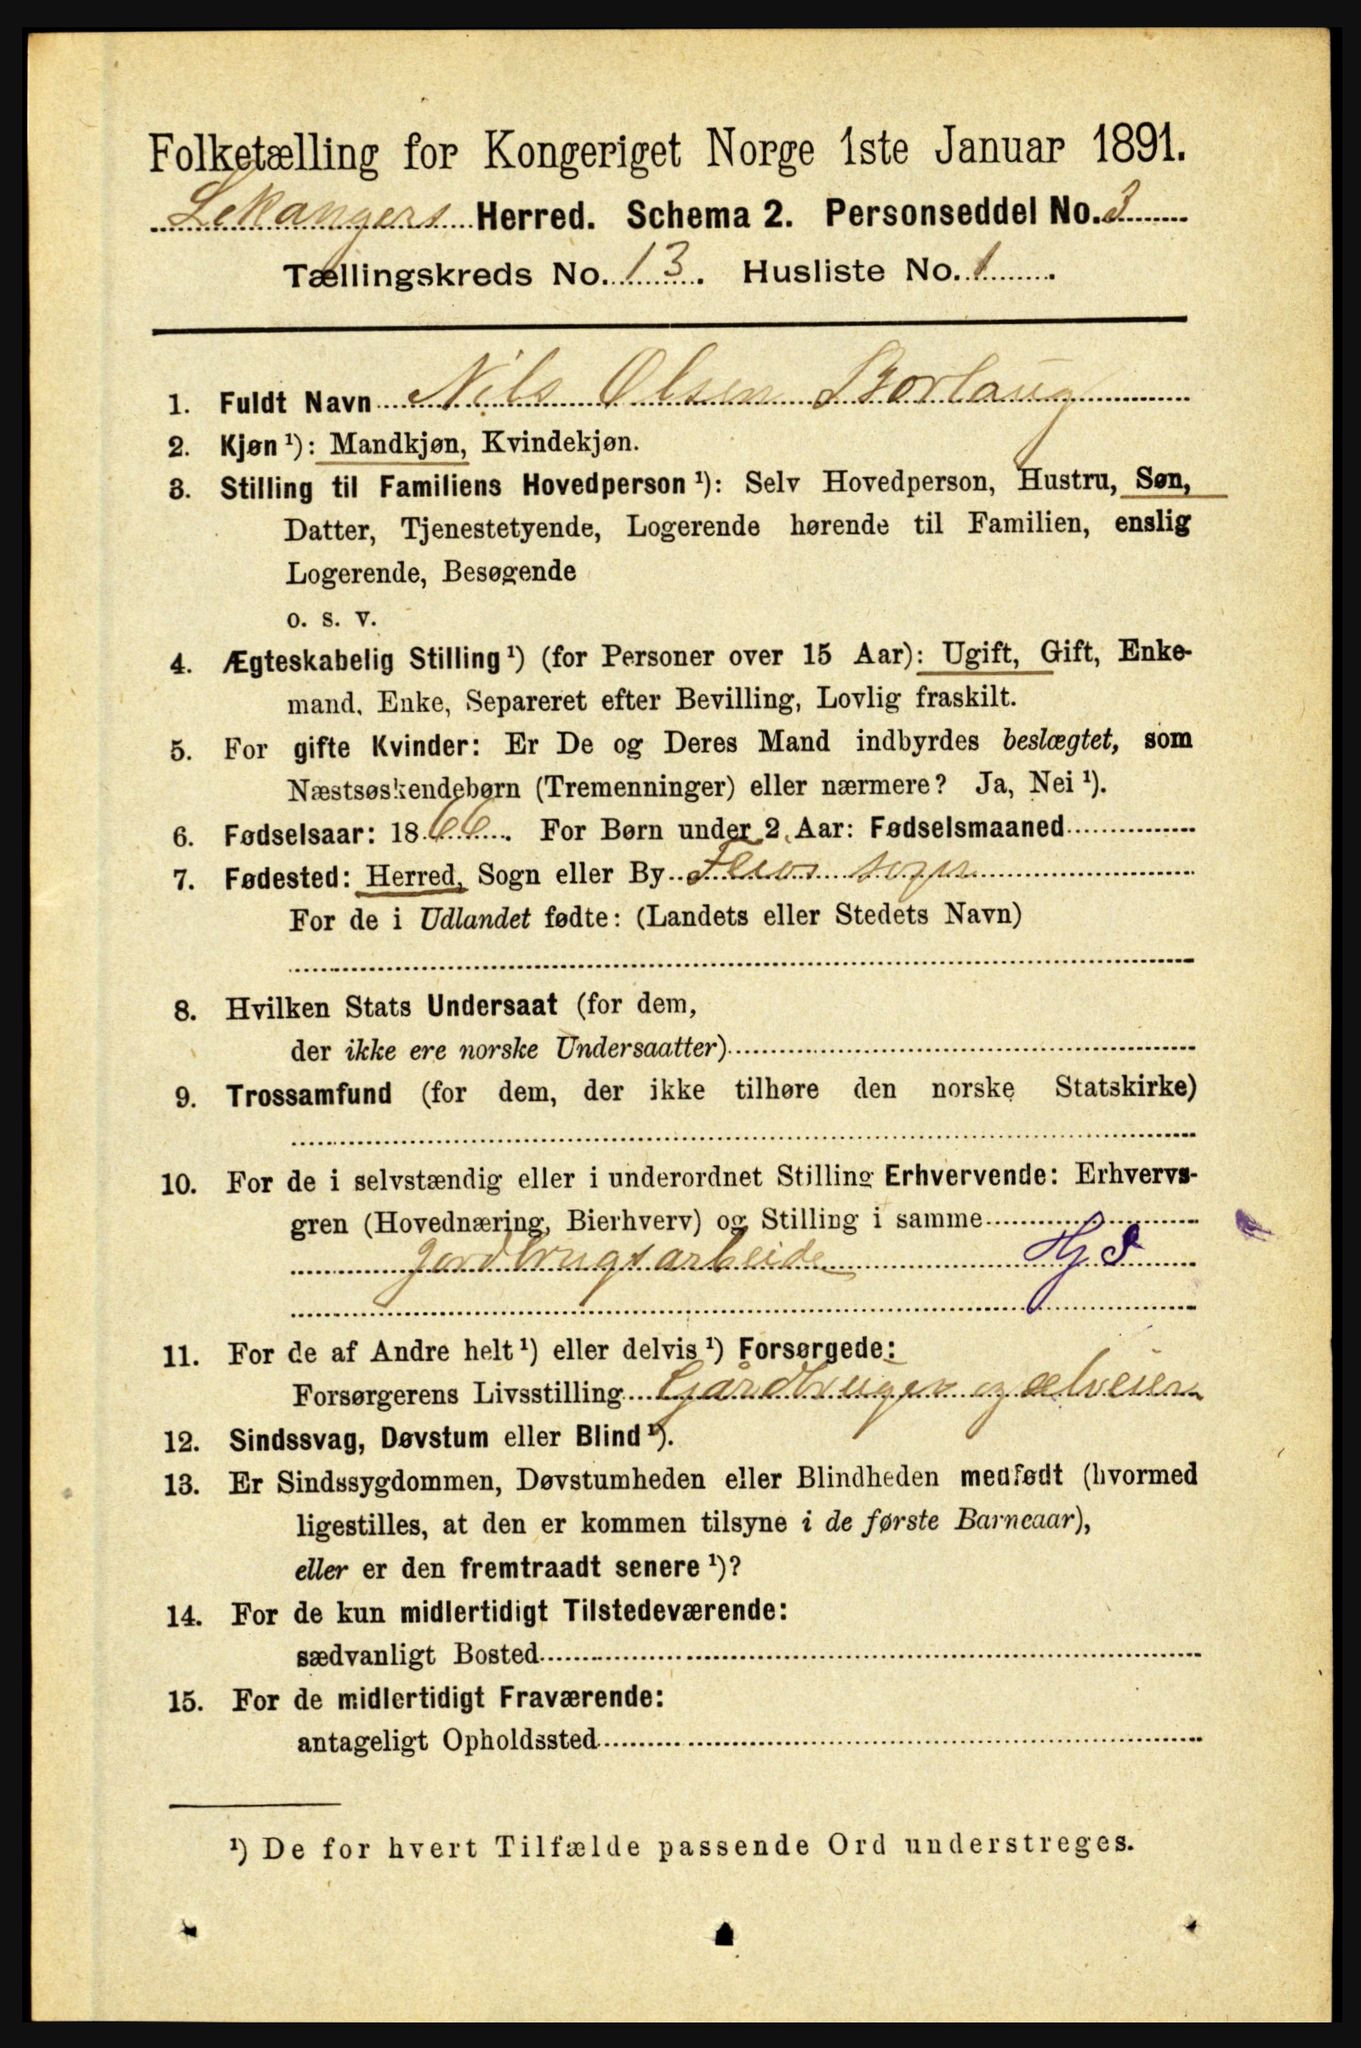 Folketælling for Kongeriget Norge 1ste Januar 1891.
Lekangers Herred. Schema 2. Personseddel No. 3
Tællingskreds No. 13. Husliste No. 1.
1. Fuldt Navn Nils Olsen Borlaug
2. Kjøn ¹): Mandkjøn, Kvindekjøn.
3. Stilling til Familiens Hovedperson ¹): Selv Hovedperson, Hustru, Søn,
Datter, Tjenestetyende, Logerende hørende til Familien, enslig
Logerende, Besøgende
o. s. v.
4. Ægteskabelig Stilling ¹) (for Personer over 15 Aar): Ugift, Gift, Enke-
mand, Enke, Separeret efter Bevilling, Lovlig fraskilt.
5. For gifte Kvinder: Er De og Deres Mand indbyrdes beslægtet, som
Næstsøskendebørn (Tremenninger) eller nærmere? Ja, Nei ¹).
6. Fødselsaar: 1866. For Børn under 2 Aar: Fødselsmaaned
7. Fødested: Herred, Sogn eller By Feios sogn
For de i Udlandet fødte: (Landets eller Stedets Navn)
8. Hvilken Stats Undersaat (for dem,
der ikke ere norske Undersaatter)
9. Trossamfund (for dem, der ikke tilhøre den norske Statskirke)
10. For de i selvstændig eller i underordnet Stilling Erhvervende: Erhvervs-
gren (Hovednæring, Bierhverv) og Stilling i samme
Jordbrugsarbeide HjS
11. For de af Andre helt ¹) eller delvis ¹) Forsørgede:
Forsørgerens Livsstilling Gårdbruger ogælveier
12. Sindssvag, Døvstum eller Blind ¹).
13. Er Sindssygdommen, Døvstumheden eller Blindheden medfødt (hvormed
ligestilles, at den er kommen tilsyne i de første Barneaar),
eller er den fremtraadt senere ¹)?
14. For de kun midlertidigt Tilstedeværende:
sædvanligt Bosted
15. For de midlertidigt Fraværende:
antageligt Opholdssted
¹) De for hvert Tilfælde passende Ord understreges.